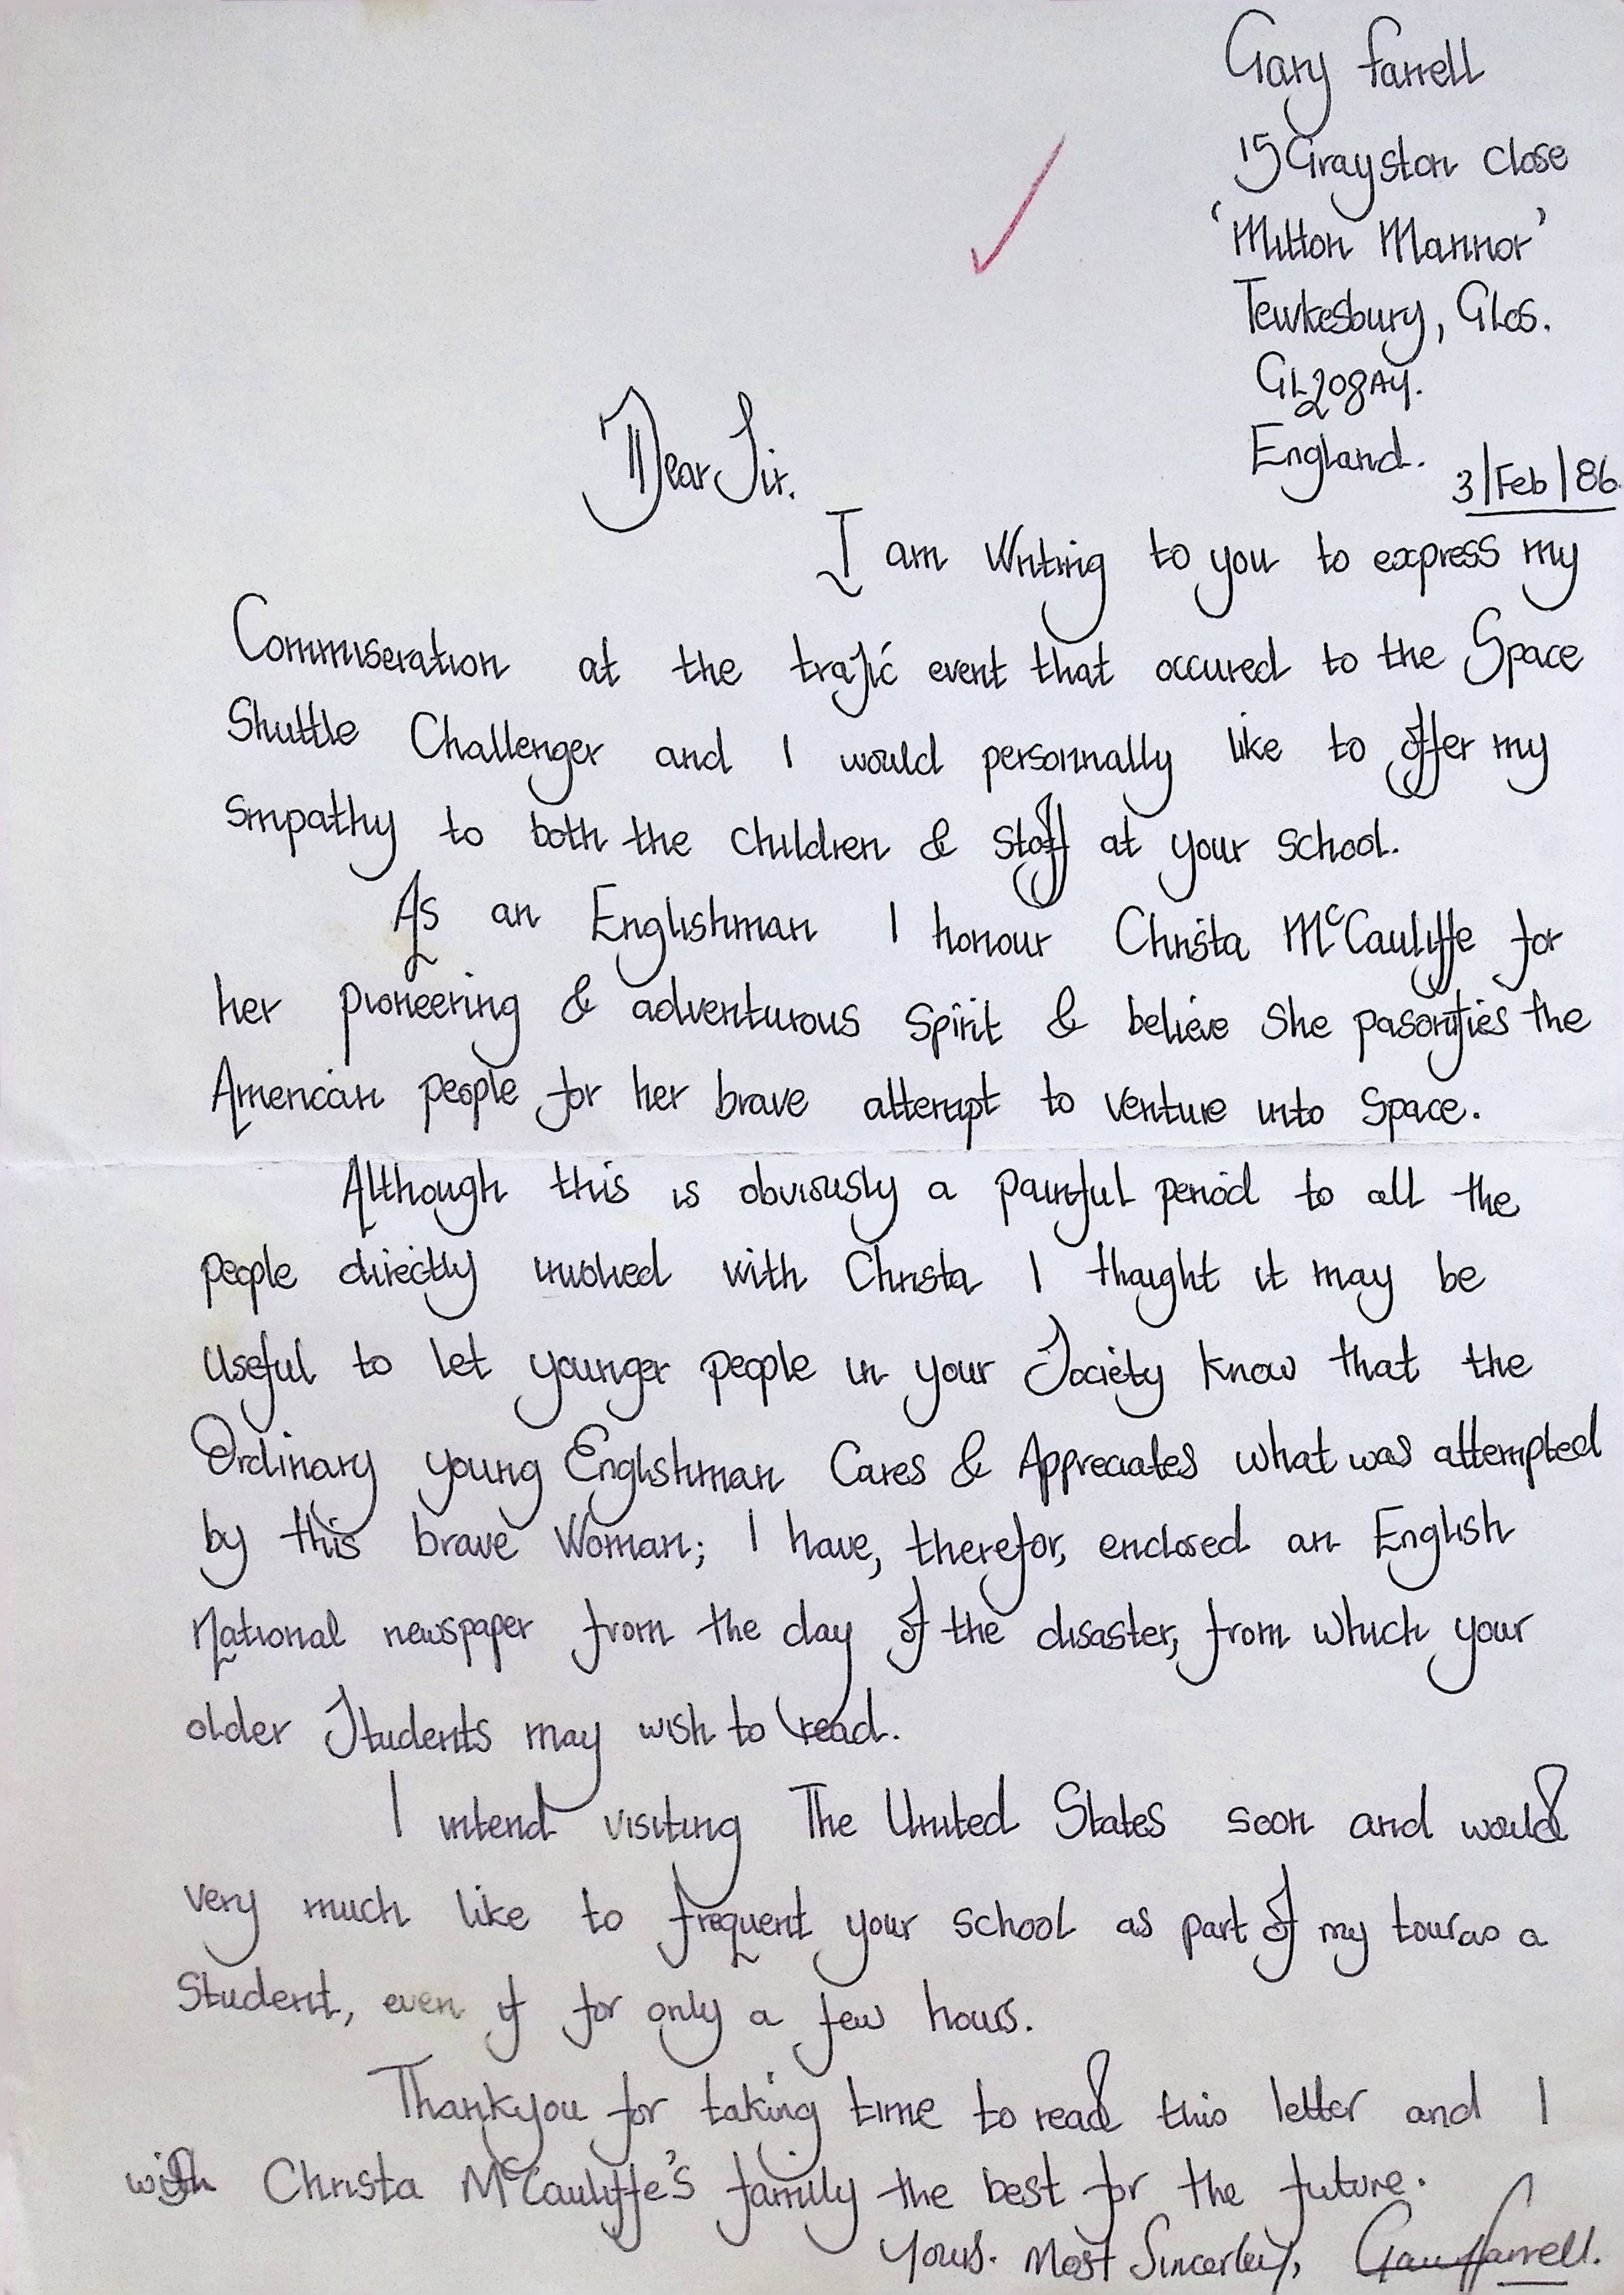 Gary Farrell
15 Grayston Close
'Mitton Mannor'
Tewkesbury, Glos.
GL208AY.
England.
3/Feb/86.
Dear Sir.
I am Writing to you to express my
Commiseration at the trajic event that occured to the Space
Shuttle Challenger and I would personnally like to offer my
Smpathy to both the children & staff at your school.
As an Englishman I honour Christa McCauliffe for
her pioneering & adventurous Spirit & believe She pasonifies the
American people for her brave attempt to venture into Space.
Although this is obviously a painful period to all the
people directly involved with Christa I thought it may be
Useful to let younger people in your Society know that the
Ordinary young Englishman Cares & Appreciates what was attempted
by this brave Woman; I have, therefor, enclosed an English
National newspaper from the day of the disaster, from which your
older Students may wish to read.
I intend visiting The United States soon and would
very much like to frequent your school as part of my tour as a
Student, even if for only a few hours.
Thankyou for taking time to read this letter and I
wish Christa McCauliffe's family the best for the future.
Yours. Most Sincerley, Gary Farrell.